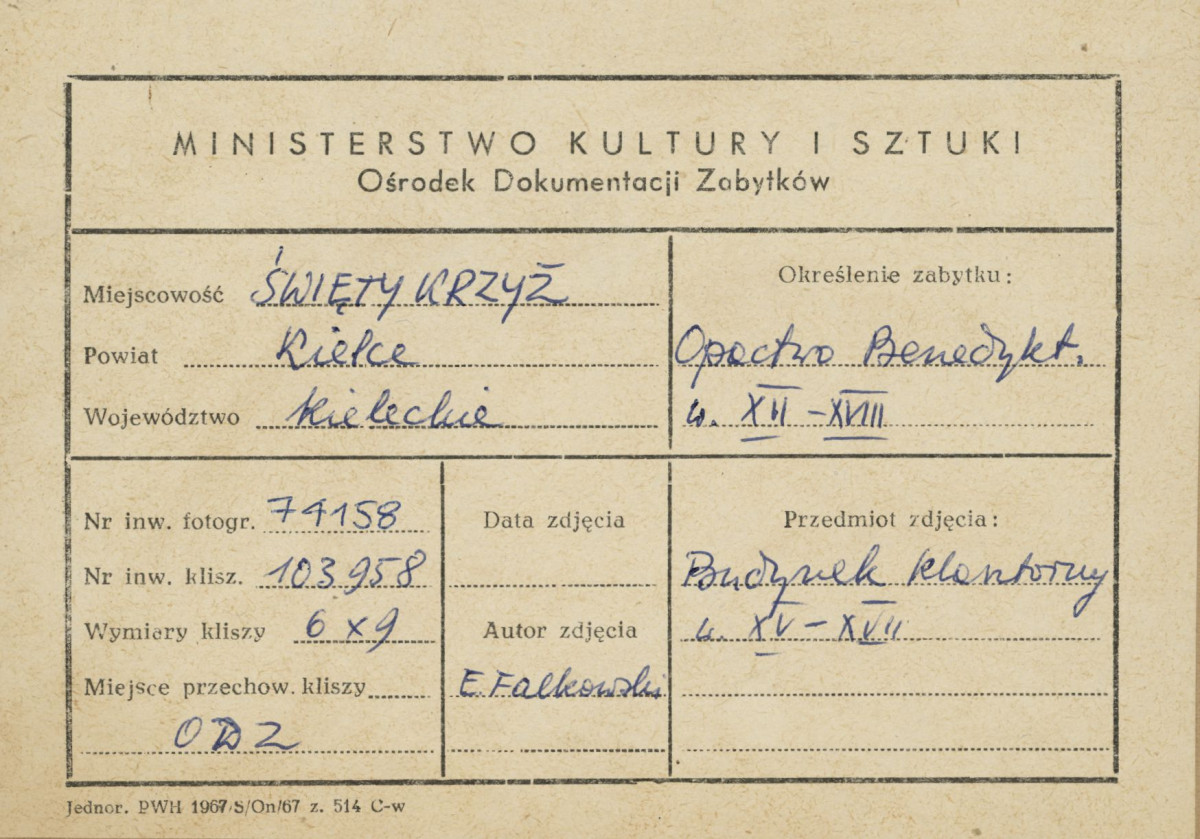 MINISTERSTWO KULTURY I SZTUKI
Ośrodek Dokumentacji Zabytków
Miejscowość ŚWIĘTY KRZYŻ
Powiat Kielce
Województwo Kieleckie
Określenie zabytku:
Opactwo Benedykt.
w. XII-XVIII
Nr inw. fotogr. 74158
Nr inw. klisz. 103958
Wymiary kliszy 6x9
Miejsce przechow. kliszy
ODZ
Data zdjęcia
Autor zdjęcia
E. Falkowski
Przedmiot zdjęcia:
Budynek klasztorny
w. XV-XVII
Jednor. PWH 1967 S/On/67 z. 514 C-w